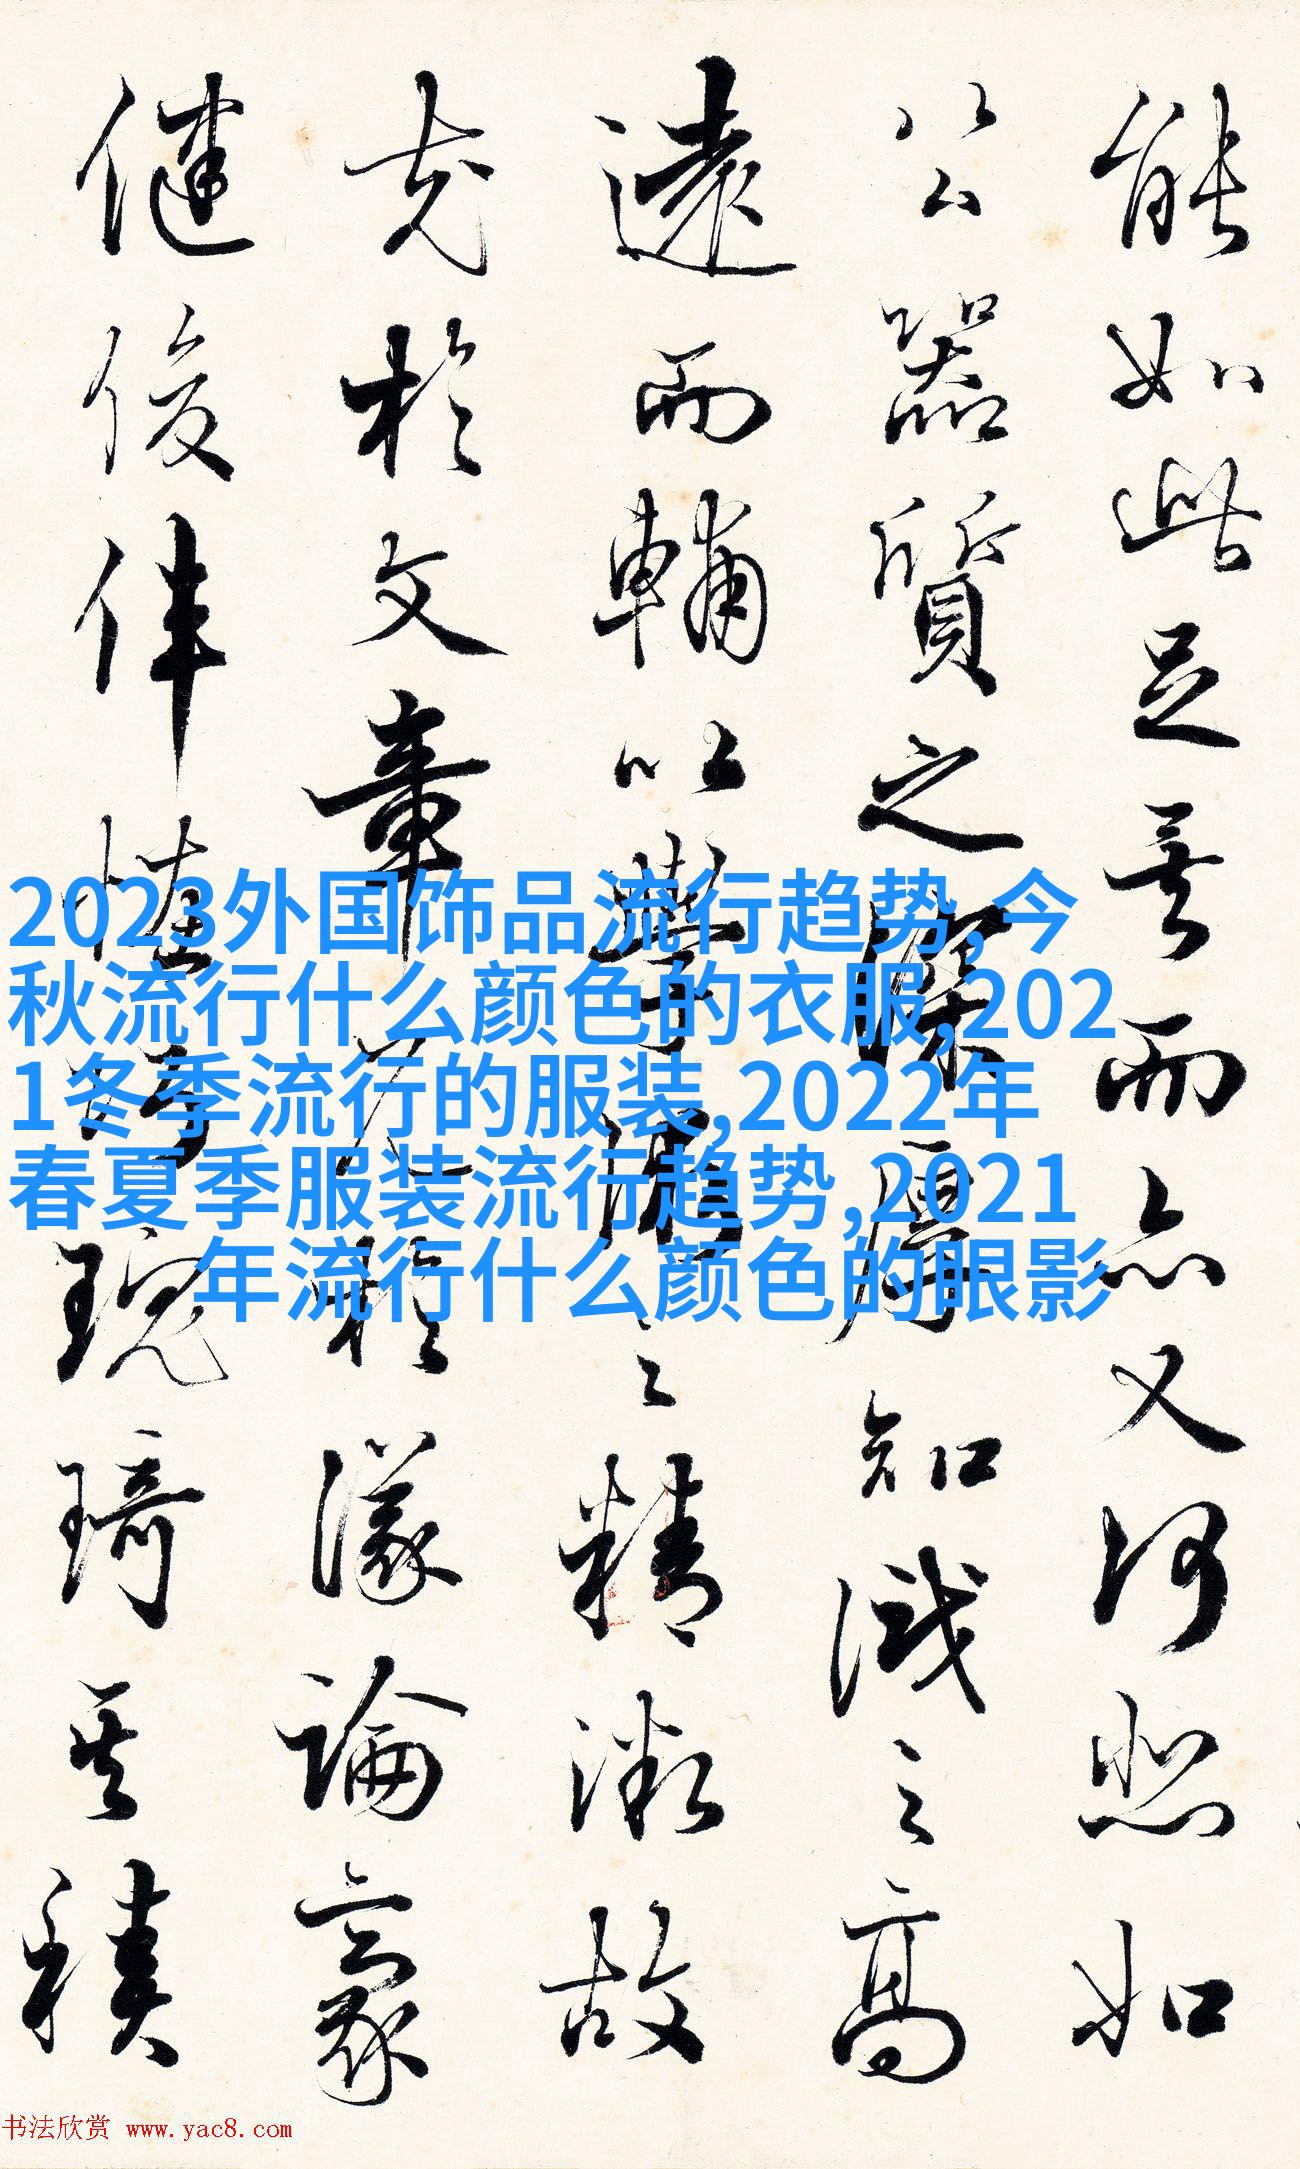 能如此足矣而亦又何悲如
公器質之深厚知識之高
遠而輔以學術之精微故
充於文章見於議論豪
健俊偉怪巧瑰琦其積
2023外国饰品流行趋势,今
秋流行什么颜色的衣服,202
1冬季流行的服装,2022年
春夏季服装流行趋势,2021
年流行什么颜色的眼影
书法欣赏 www.yac8.com